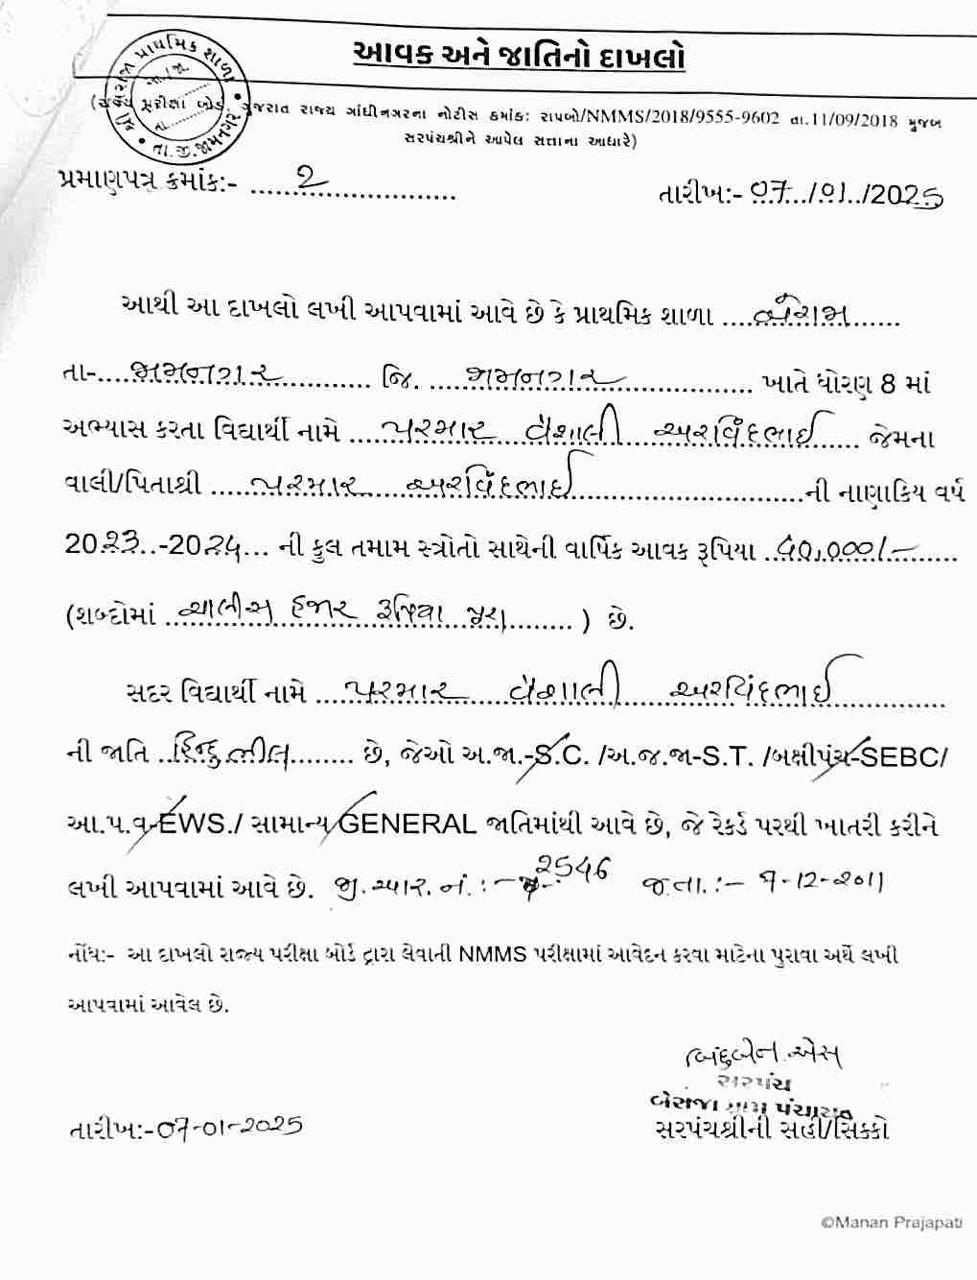 આવક અને જાતિનો દાખલો
(રાજ્ય પરીક્ષા બોર્ડ ગુજરાત રાજ્ય ગાંધીનગરના નોટીસ ક્રમાંક: રાપબો/NMMS/2018/9555-9602 તા.11/09/2018 મુજબ
સરપંચશ્રીને આપેલ સત્તાના આધારે)
પ્રમાણપત્ર ક્રમાંક:- 2 તારીખ:- 07/01/2025
આથી આ દાખલો લખી આપવામાં આવે છે કે પ્રાથમિક શાળા
તા- જામનગર જિ. જામનગર ખાતે ધોરણ 8 માં
અભ્યાસ કરતા વિદ્યાર્થી નામે પરમાર વૈશાલી અરવિંદભાઈ જેમના
વાલી/પિતાશ્રી પરમાર અરવિંદભાઈ ની નાણાકિય વર્ષ
2023-2024 ની કુલ તમામ સ્ત્રોતો સાથેની વાર્ષિક આવક રૂપિયા ૪૦,૦૦૦/-
(શબ્દોમાં ચાલીસ હજાર રૂપિયા પૂરા ) છે.
સદર વિદ્યાર્થી નામે પરમાર વૈશાલી અરવિંદભાઈ
ની જાતિ હિન્દુ ભીલ છે, જેઓ અ.જા.-S.C. /અ.જ.જા-S.T. /બક્ષીપંચ-SEBC/
આ.પ.વ-EWS./ સામાન્ય/GENERAL જાતિમાંથી આવે છે, જે રેકર્ડ પરથી ખાતરી કરીને
લખી આપવામાં આવે છે. જી.આર.નં.:- 2546 જ.તા.:- ૧-12-2011
નોંધ:- આ દાખલો રાજ્ય પરીક્ષા બોર્ડ દ્વારા લેવાની NMMS પરીક્ષામાં આવેદન કરવા માટેના પુરાવા અર્થે લખી
આપવામાં આવેલ છે.
બિંદુબેન એસ
સરપંચ
બેરાજા ગ્રામ પંચાયત
તારીખ:-07-01-2025 સરપંચશ્રીની સહી/સિક્કો
©Manan Prajapati